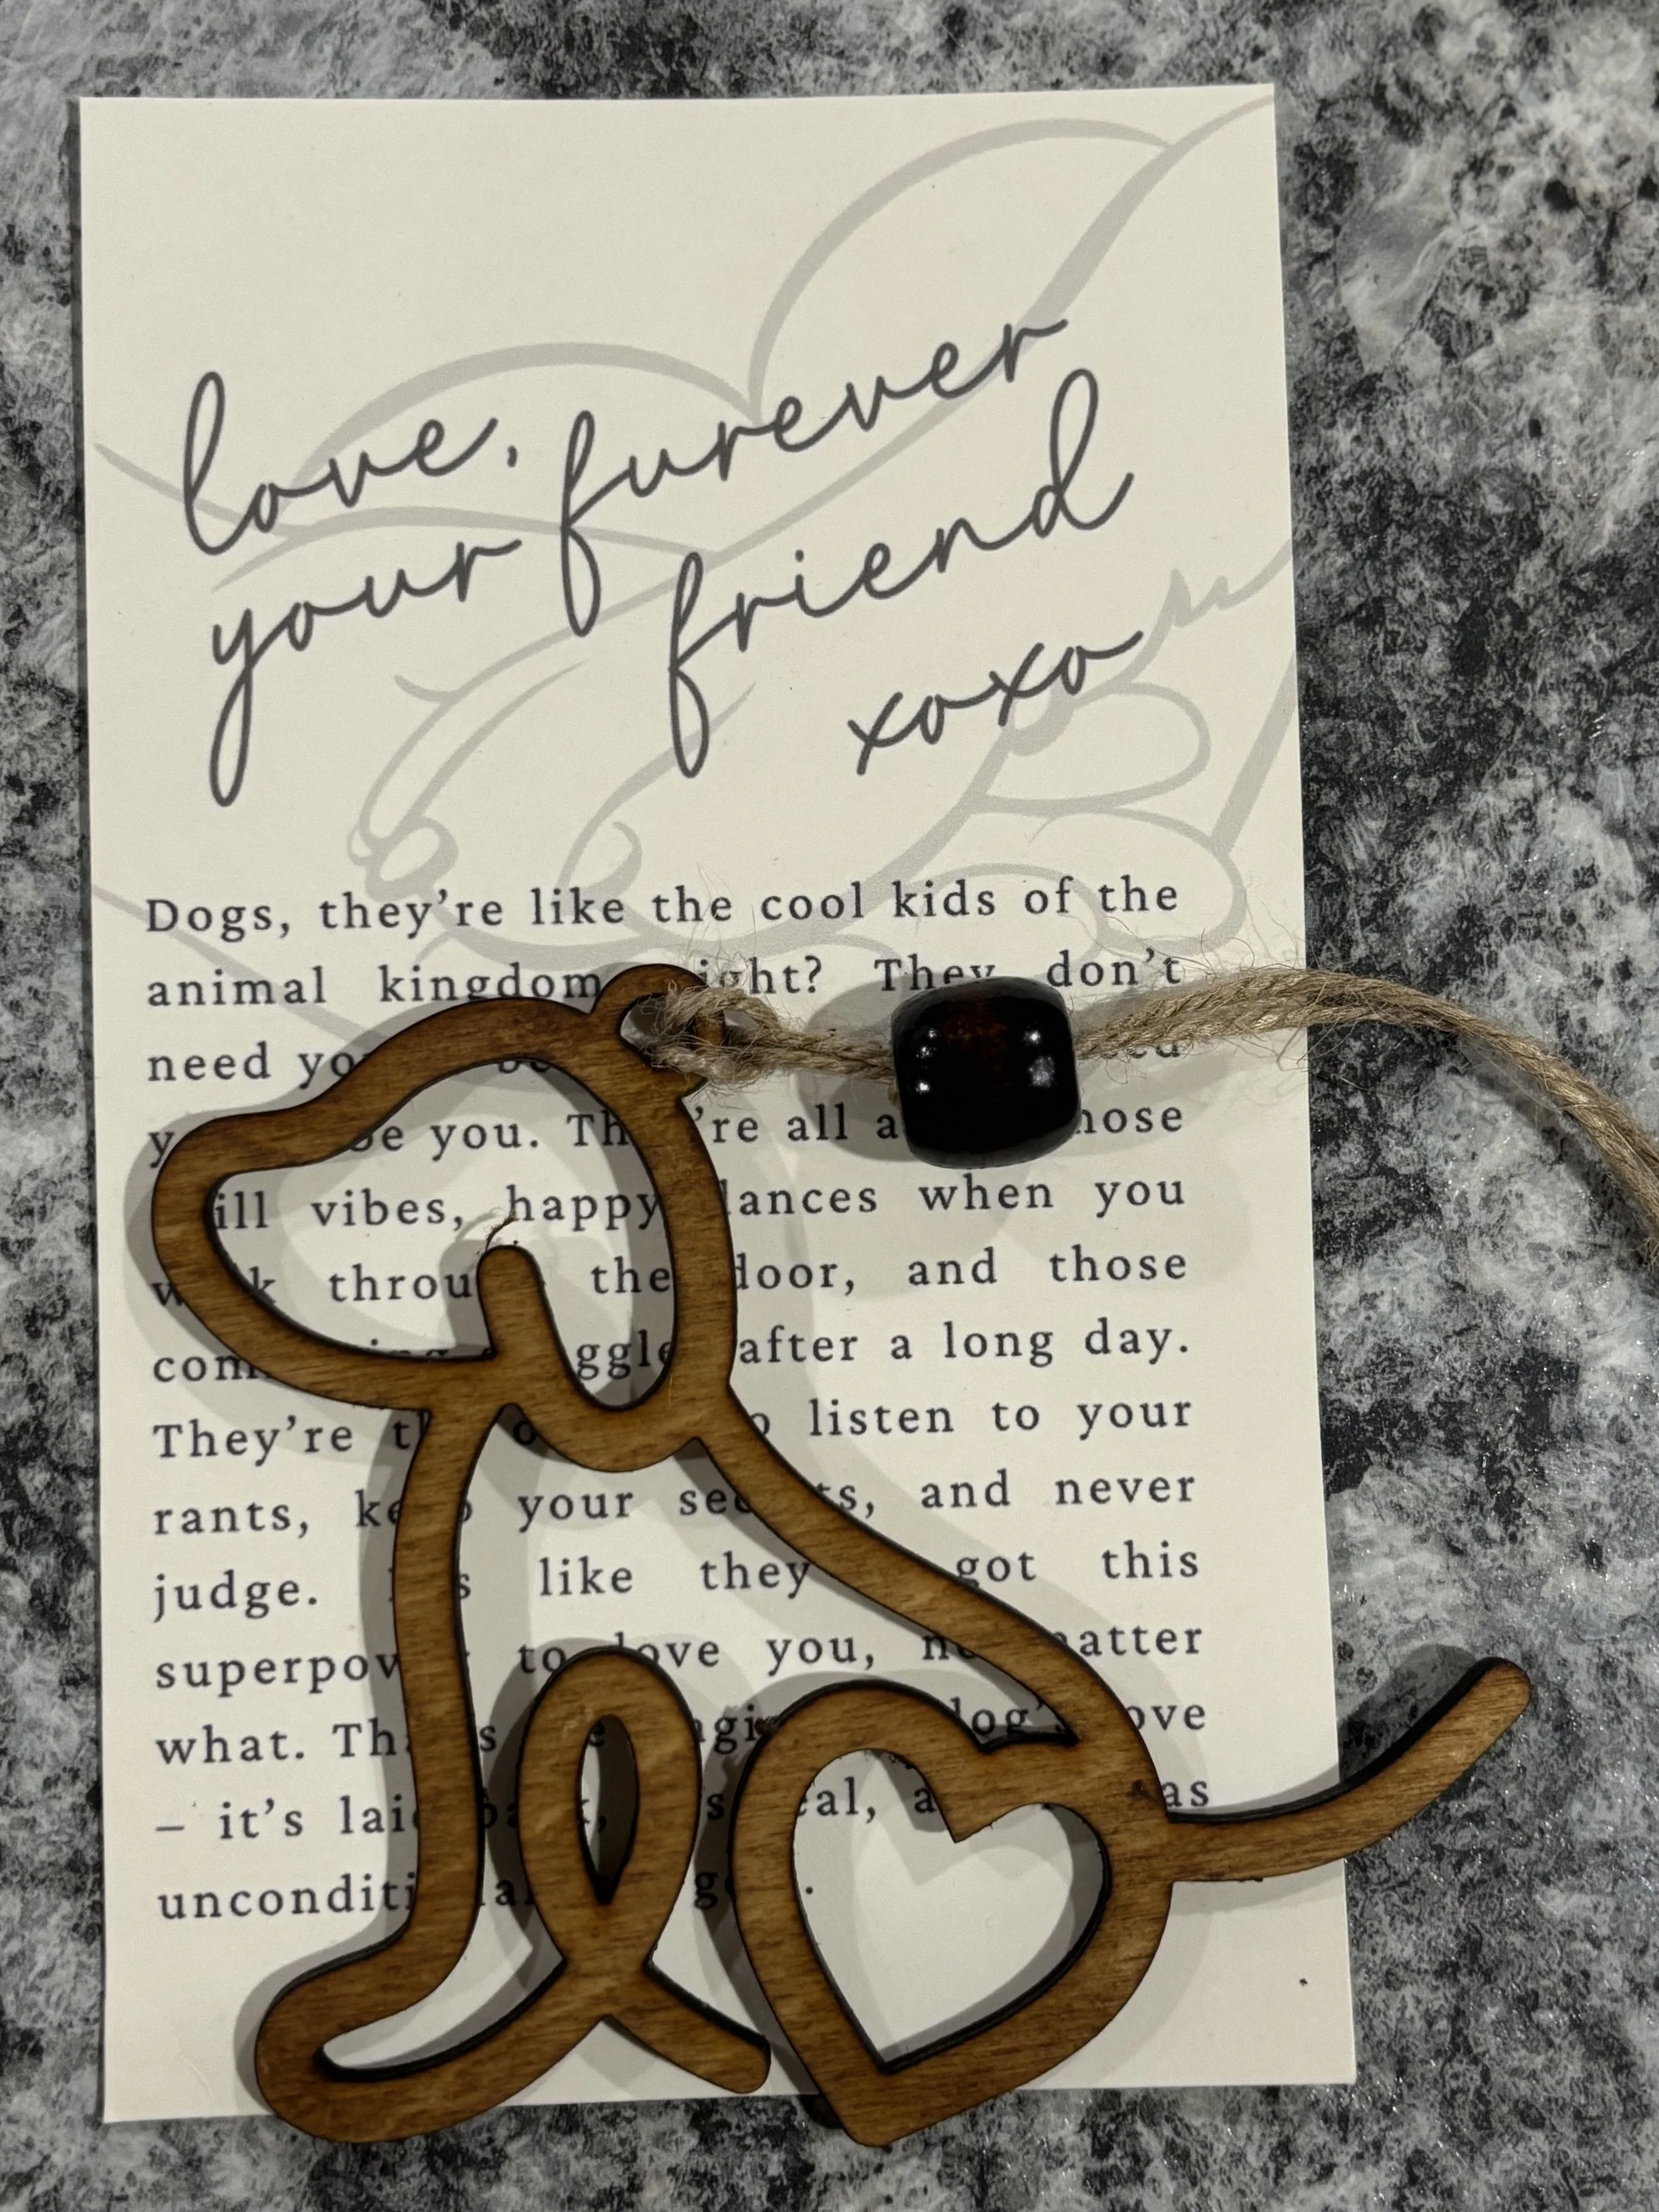 love,
your furever
friend
xoxo
Dogs, they’re like the cool kids of the
animal kingdom ight? They don’t
need yo
be you. Th ’re all a hose
ill vibes, happy ances when you
throu the door, and those
com ing ggle after a long day.
They’re t o listen to your
rants, ke your sec ts, and never
judge. s like they got this
superpow to love you, n atter
what. Th s agi dog’s ove
– it’s lai ba s eal, a as
unconditi